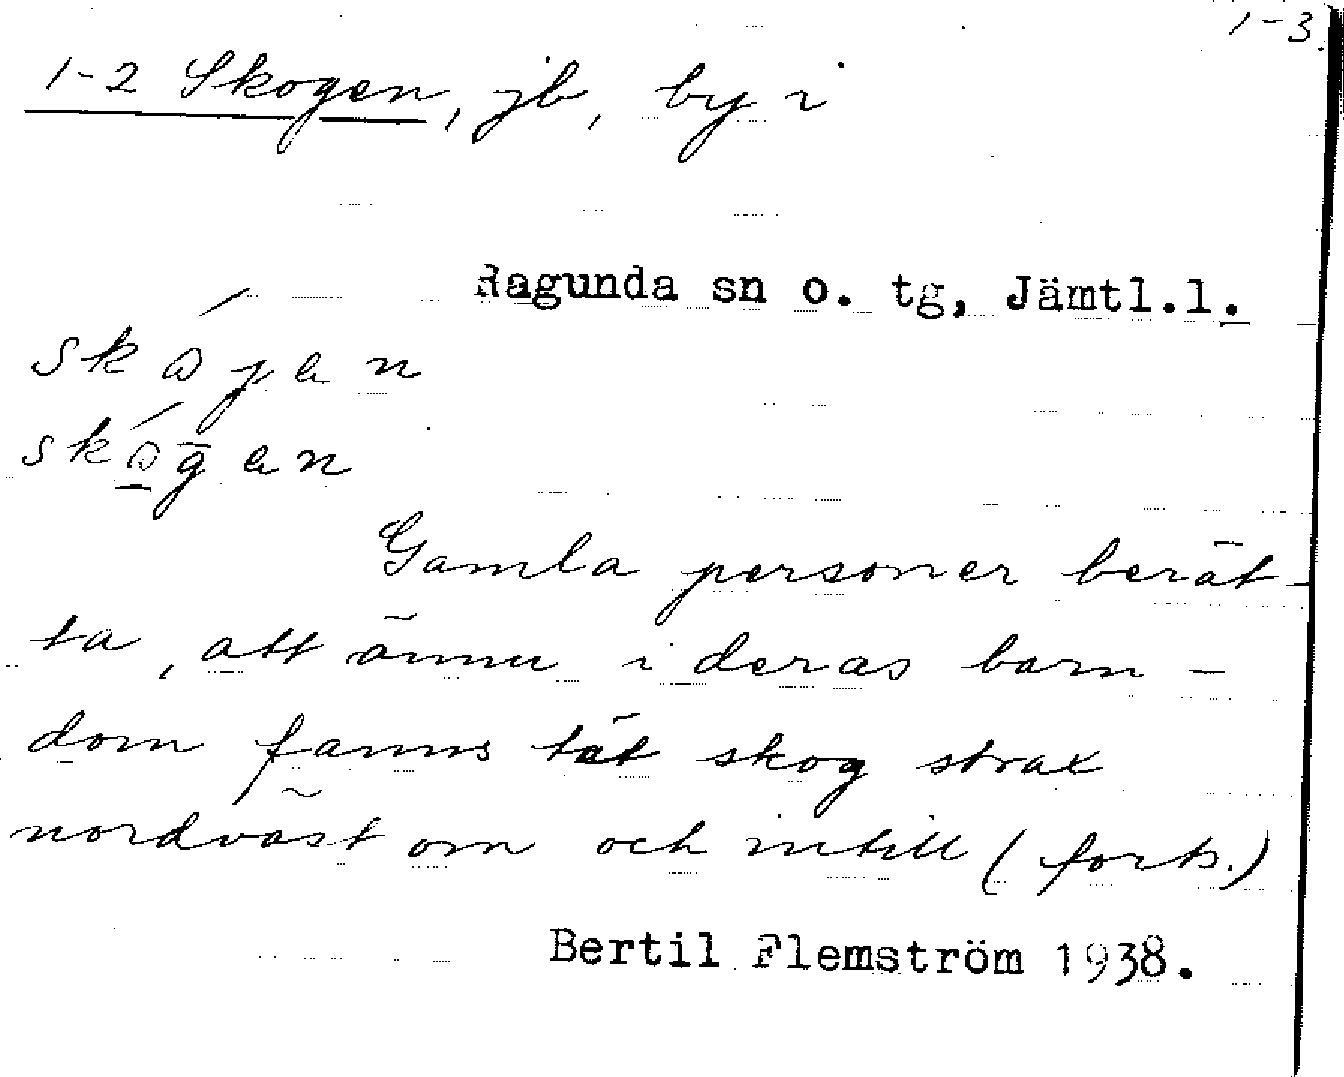 1-3.
1-2 Skogen, jb, by i
Ragunda sn o. tg, Jämtl.l.
skójen
skógen
Gamla personer berät-
ta, att ännu i deras barn-
dom fanns tät skog strax
nordväst om och intill (forts.)
Bertil Flemström 1938.